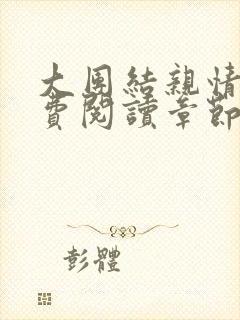 大團結親情
費閱讀章節
彭體